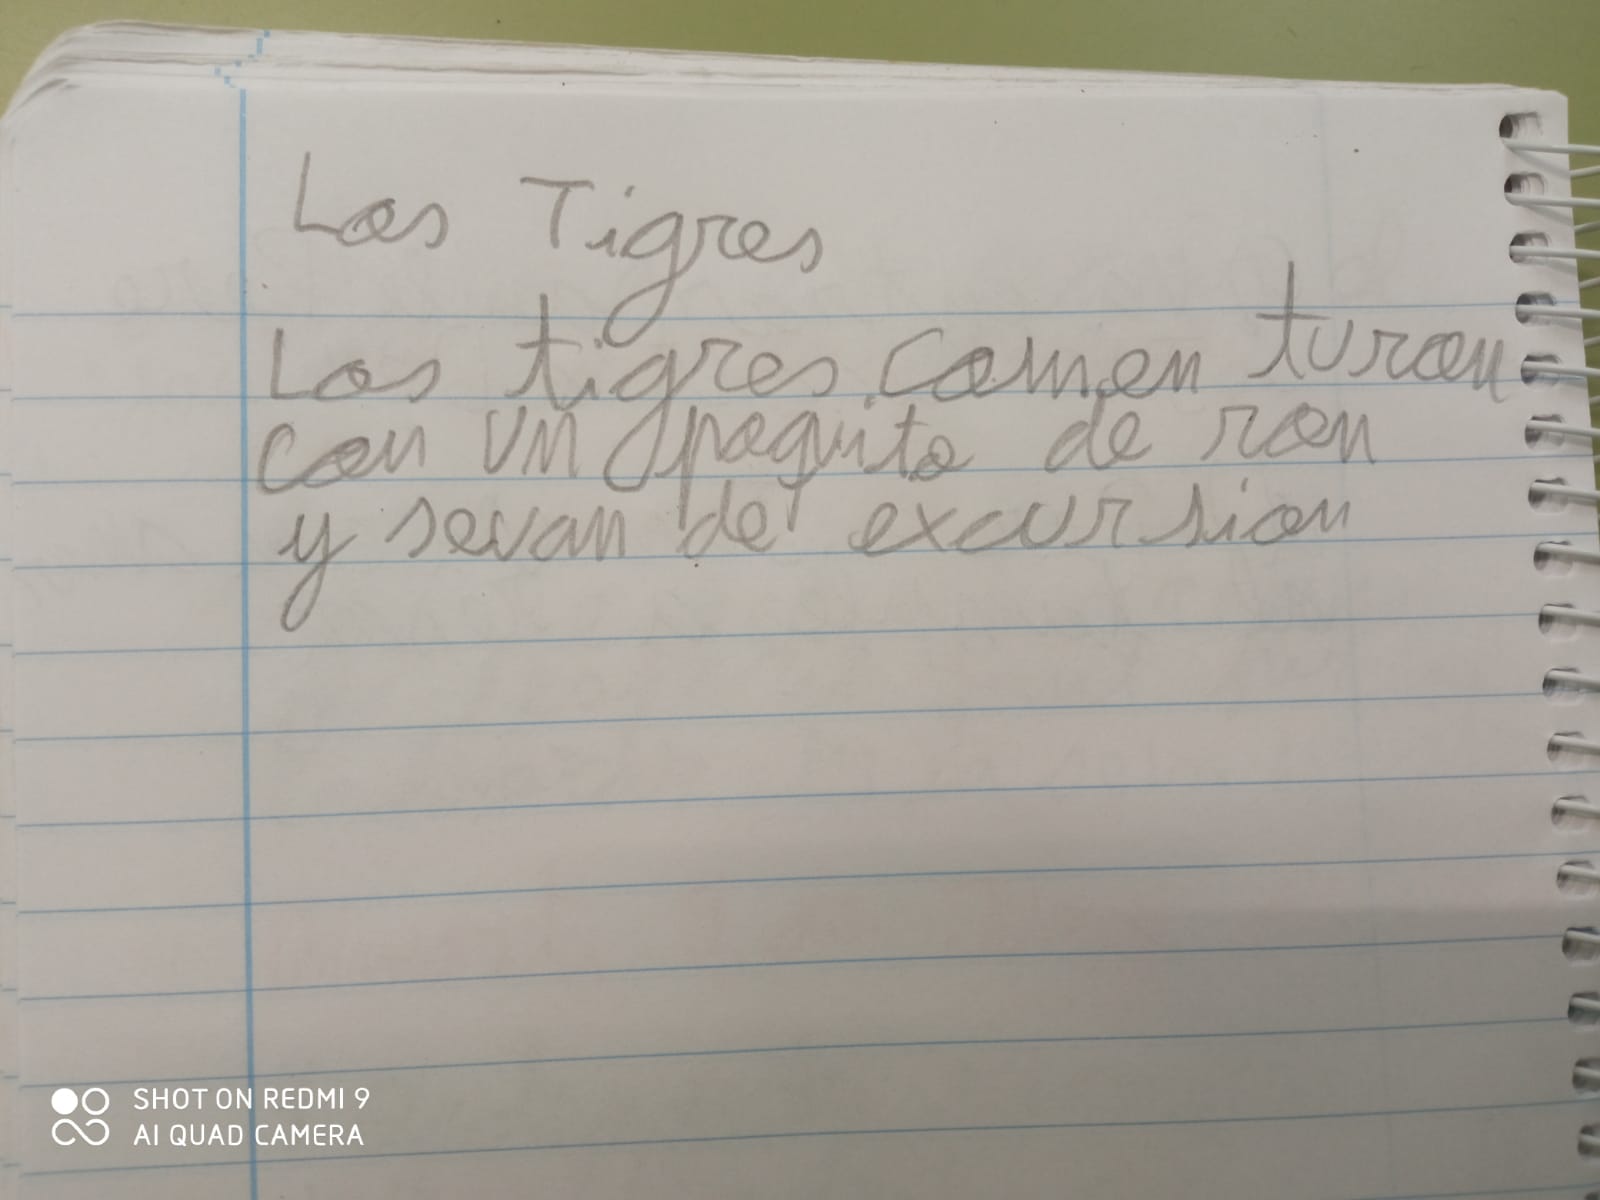 Los Tigres
Los tigres comen turon
con un poquito de ron
y sevan de excursion
SHOT ON REDMI 9
AI QUAD CAMERA